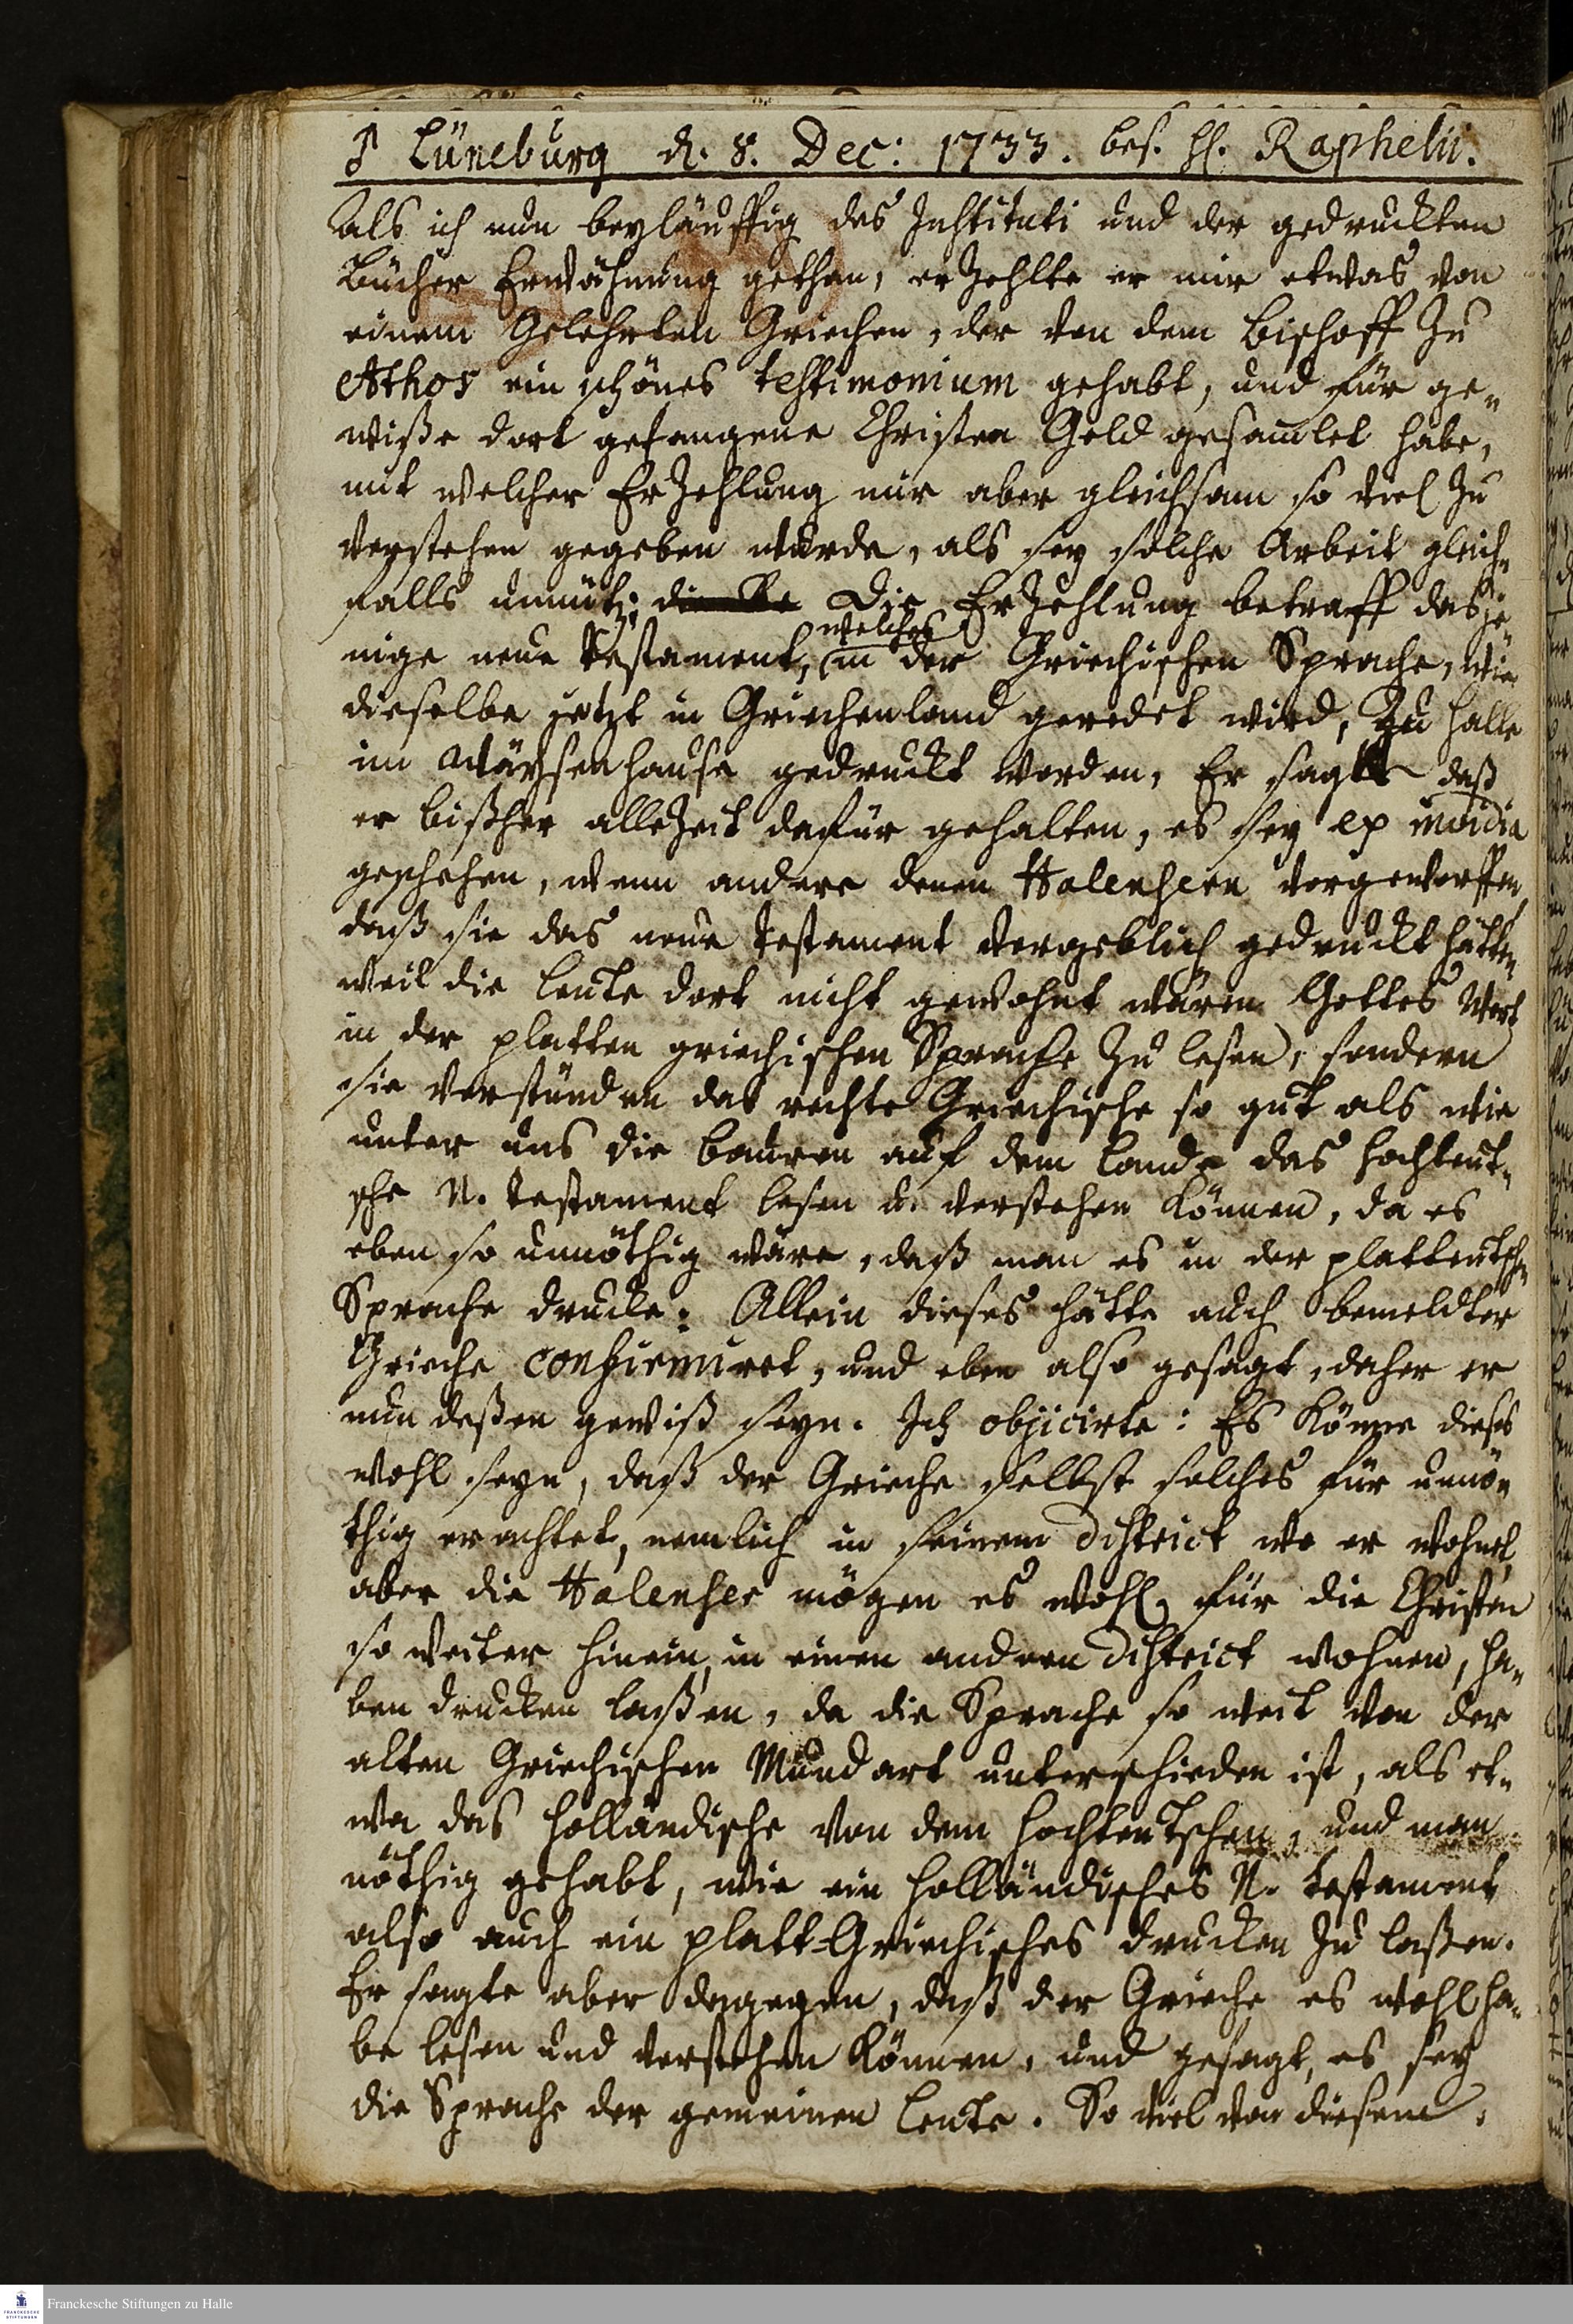 ♂ Lüneburg d. 8. Dec: 1733. bes. H. Raphelii.
Als ich nun beyläuffig des Instituti und der gedruckten
Bücher Erwähnung gethan, erzehlte er mir etwas von
einem Gelehrten Griechen, der von dem Bischoff zu
Athos ein schönes testimonium gehabt, und für ge-
wiße dort gefangene Christen Geld gesamlet habe,
mit welcher Erzehlung mir aber gleichsam so viel zu
verstehen gegeben wurde, als sey solche Arbeit gleich-
falls unnütz; Die Erzehlung betraff dasje-
welches
nige neue Testament, in der Griechischen Sprache, wie
dieselbe jetzt in Griechenland geredet wird, zu Halle
im Wäysenhause gedruckt worden. Er sagte daß
er bißher allezeit dafür gehalten, es sey ex invidia
geschehen, wenn andere denen Halensern vorgeworffen,
daß sie das neue Testament vergeblich gedruckt hätten,
weil die Leute dort nicht gewohnt wären Gottes Wort
in der platten griechischen Sprache zu lesen, sondern
sie verstünden das rechte Griechische so gut als wie
unter uns die Bauren auf dem Lande das hochteut-
sche N. Testament lesen u. verstehen können, da es
eben so unnöthig wäre, daß man es in der plattteutschen
Sprache drucke: Allein dieses hätte auch bemeldter
Grieche confirmiret, und eben also gesagt, daher er
nun deßen gewiß seyn. Ich objicirte: Es könne dieses
wohl seyn, daß der Grieche selbst solches für unnö-
thig erachtet, nemlich in seinem District wo er wohnet,
aber die Halenser mögen es wohl für die Christen
so weiter hinein, in einen andern District wohnen, ha-
ben drucken laßen, da die Sprache so weit von der
alten Griechischen Mundart unterschieden ist, als et-
wa das Holländische von dem Hochteutschen, und man
nöthig gehabt, wie ein Holländisches N. Testament
also auch ein platt-Griechisches drucken zu laßen.
Er sagte aber dagegen, daß der Grieche es wohl ha-
be lesen und verstehen können, und gesagt, es sey
die Sprache der gemeinen Leute. So viel von diesem.
Franckesche Stiftungen zu Halle